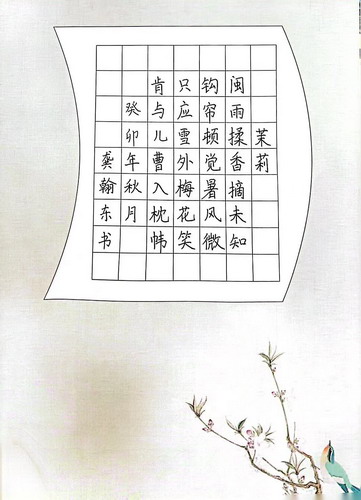 茉莉
闽雨揉香摘未知
钩帘顿觉暑风微
只应雪外梅花笑
肯与儿曹入枕帏
癸卯年秋月
龚翰东书